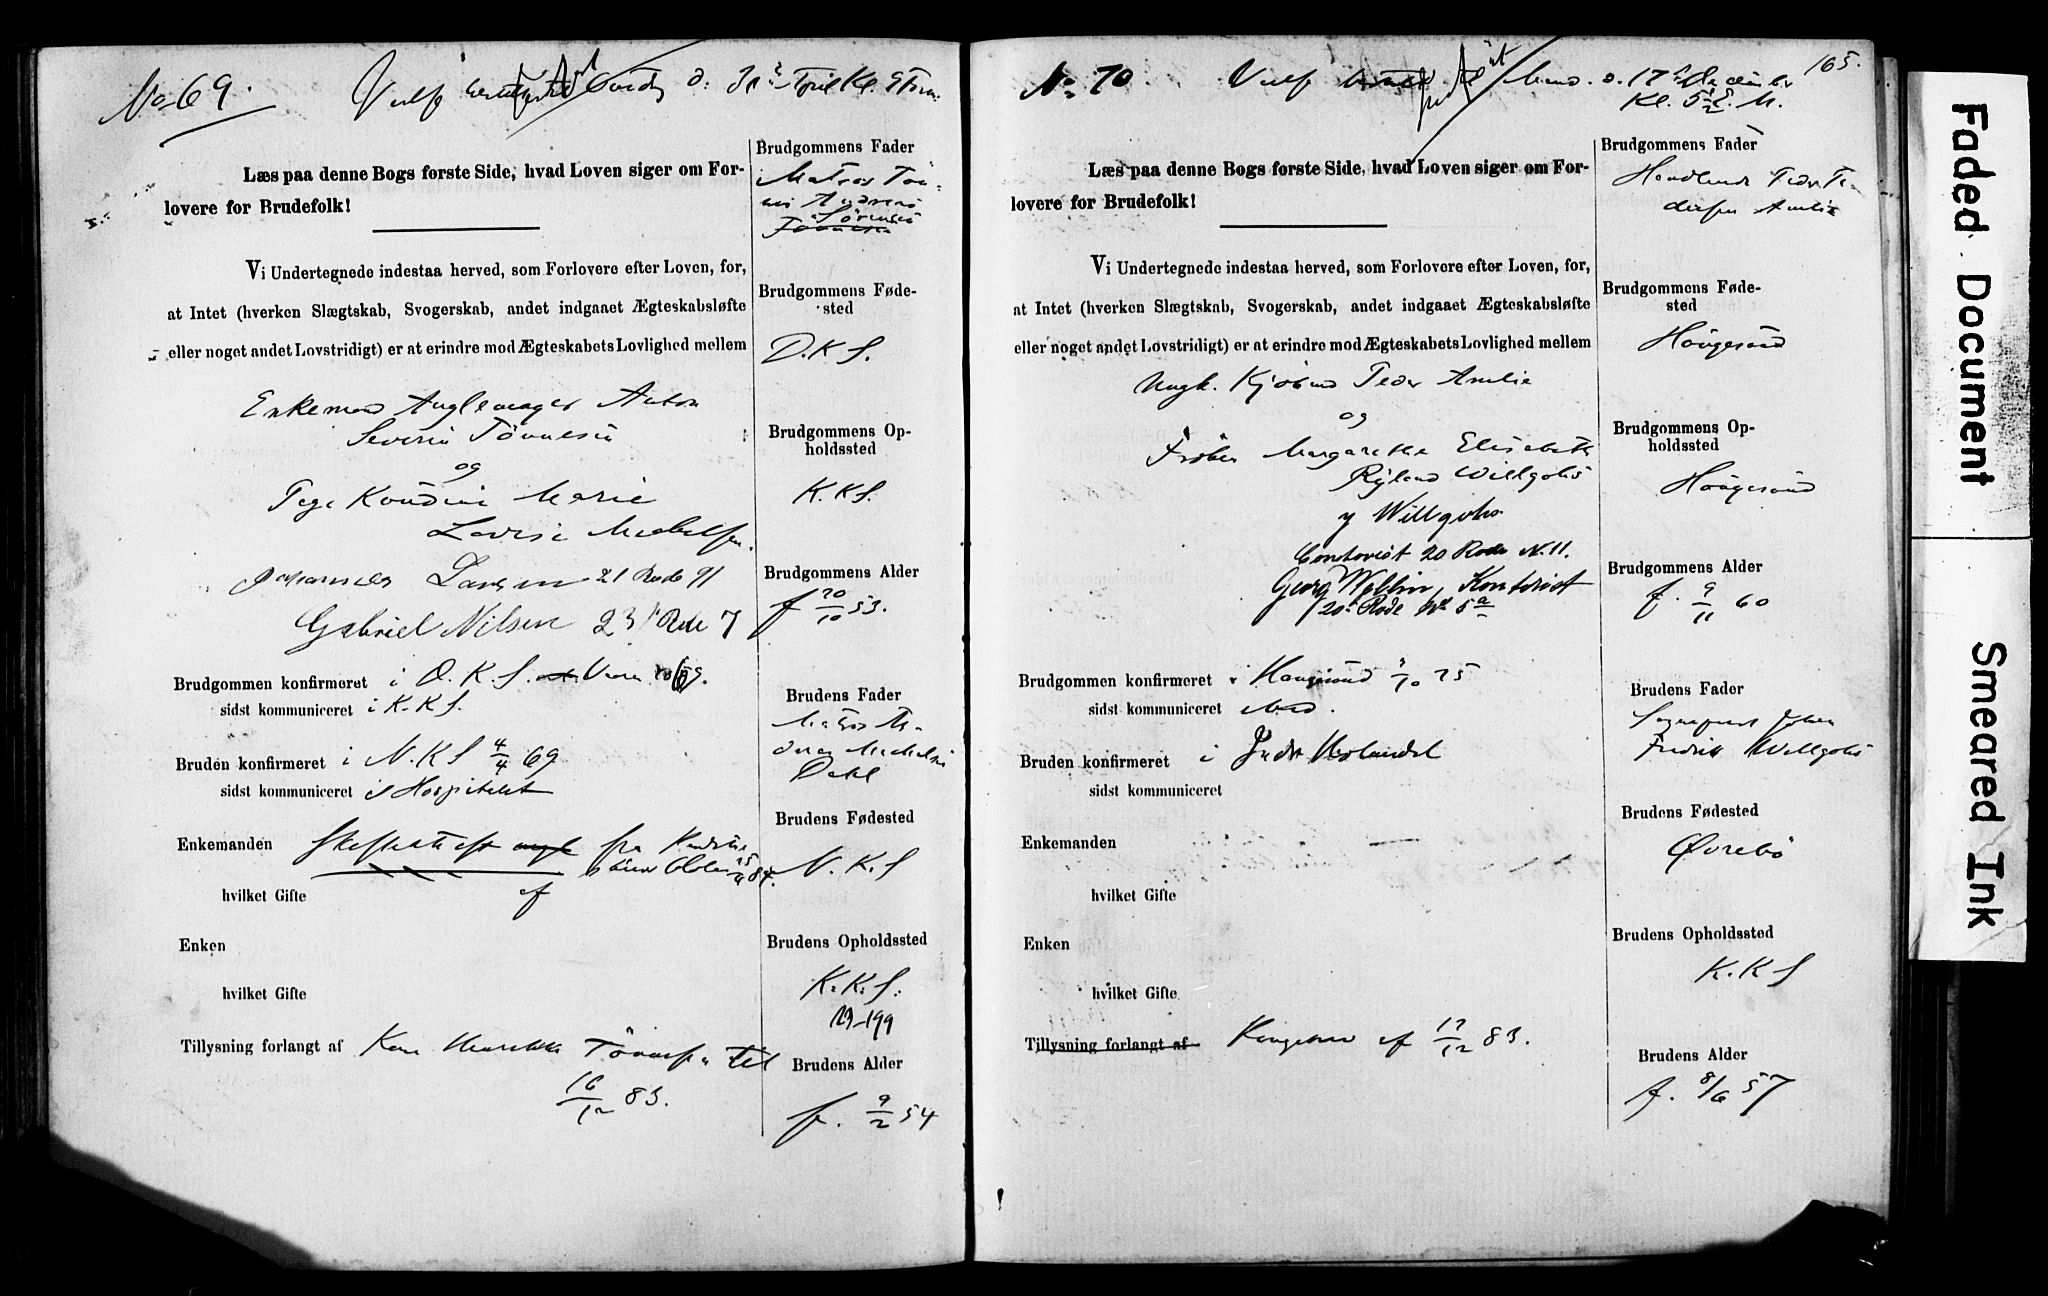 No 69.
Læs paa denne Bogs første Side, hvad Loven siger om For-
lovere for Brudefolk!
Vi Undertegnede indestaa herved, som Forlovere efter Loven, for,
at Intet (hverken Slægtskab, Svogerskab, andet indgaaet Ægteskabsløfte
eller noget andet Lovstridigt) er at erindre mod Ægteskabets Lovlighed mellem
Enkemand Anton
Severin Tönnesen
og
Marie
Lovise
Johannes Larsen 21 Rode 91
Gabriel Nilsen 23 Rode 7
Brudgommen konfirmeret i O.K.S. 69.
sidst kommuniceret i K.K.S.
Bruden konfirmeret i N.K.S 4/4 69
sidst kommuniceret i Hospitalet
Enkemanden Skifteattest fra
hvilket Gifte af
Enken
hvilket Gifte
Tillysning forlangt af Tönnesen til
16/12 83.
Brudgommens Fader
Matros
Brudgommens Føde-
sted
O.K.S.
Brudgommens Op-
holdssted
K.K.S.
Brudgommens Alder
f 20/10 53.
Brudens Fader
Matros
Dahl
Brudens Fødested
N.K.S
Brudens Opholdssted
K.K.S.
19-199
Brudens Alder
f. 9/2 54
165.
No 70 17 December
Kl. 5 1/2 E.M.
Læs paa denne Bogs første Side, hvad Loven siger om For-
lovere for Brudefolk!
Vi Undertegnede indestaa herved, som Forlovere efter Loven, for,
at Intet (hverken Slægtskab, Svogerskab, andet indgaaet Ægteskabsløfte
eller noget andet Lovstridigt) er at erindre mod Ægteskabets Lovlighed mellem
Ungk. Kjøbmd Peder Amlie
og
Frøken Margarethe Elisabeth
Willgohs
Willgohs
Contorist 20 Rode N. 11.
Georg Wellin, Kontorist
20 Rode No 5a
Brudgommen konfirmeret i Haugesund 3/10 75
sidst kommuniceret
Bruden konfirmeret i
sidst kommuniceret
Enkemanden
hvilket Gifte
Enken
hvilket Gifte
Tillysning forlangt af Kongebrev af 17/12 83.
Brudgommens Fader
Peder Pe-
dersen Amlie
Brudgommens Føde-
sted
Haugesund
Brudgommens Op-
holdssted
Haugesund
Brudgommens Alder
f. 9/11 60
Brudens Fader
Sogneprest Johan
Fredrik Willgohs
Brudens Fødested
Øvrebö
Brudens Opholdssted
K.K.S
Brudens Alder
f. 8/6 57
Faded Document
Smeared Ink